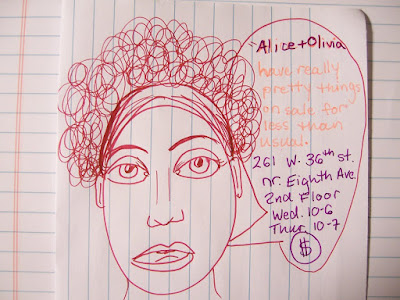 Alice + Olivia
have really
pretty things
on sale for
less than
usual.
261 W. 36th st.
nr. Eighth Ave.
2nd Floor
Wed. 10-6
Thur. 10-7
$